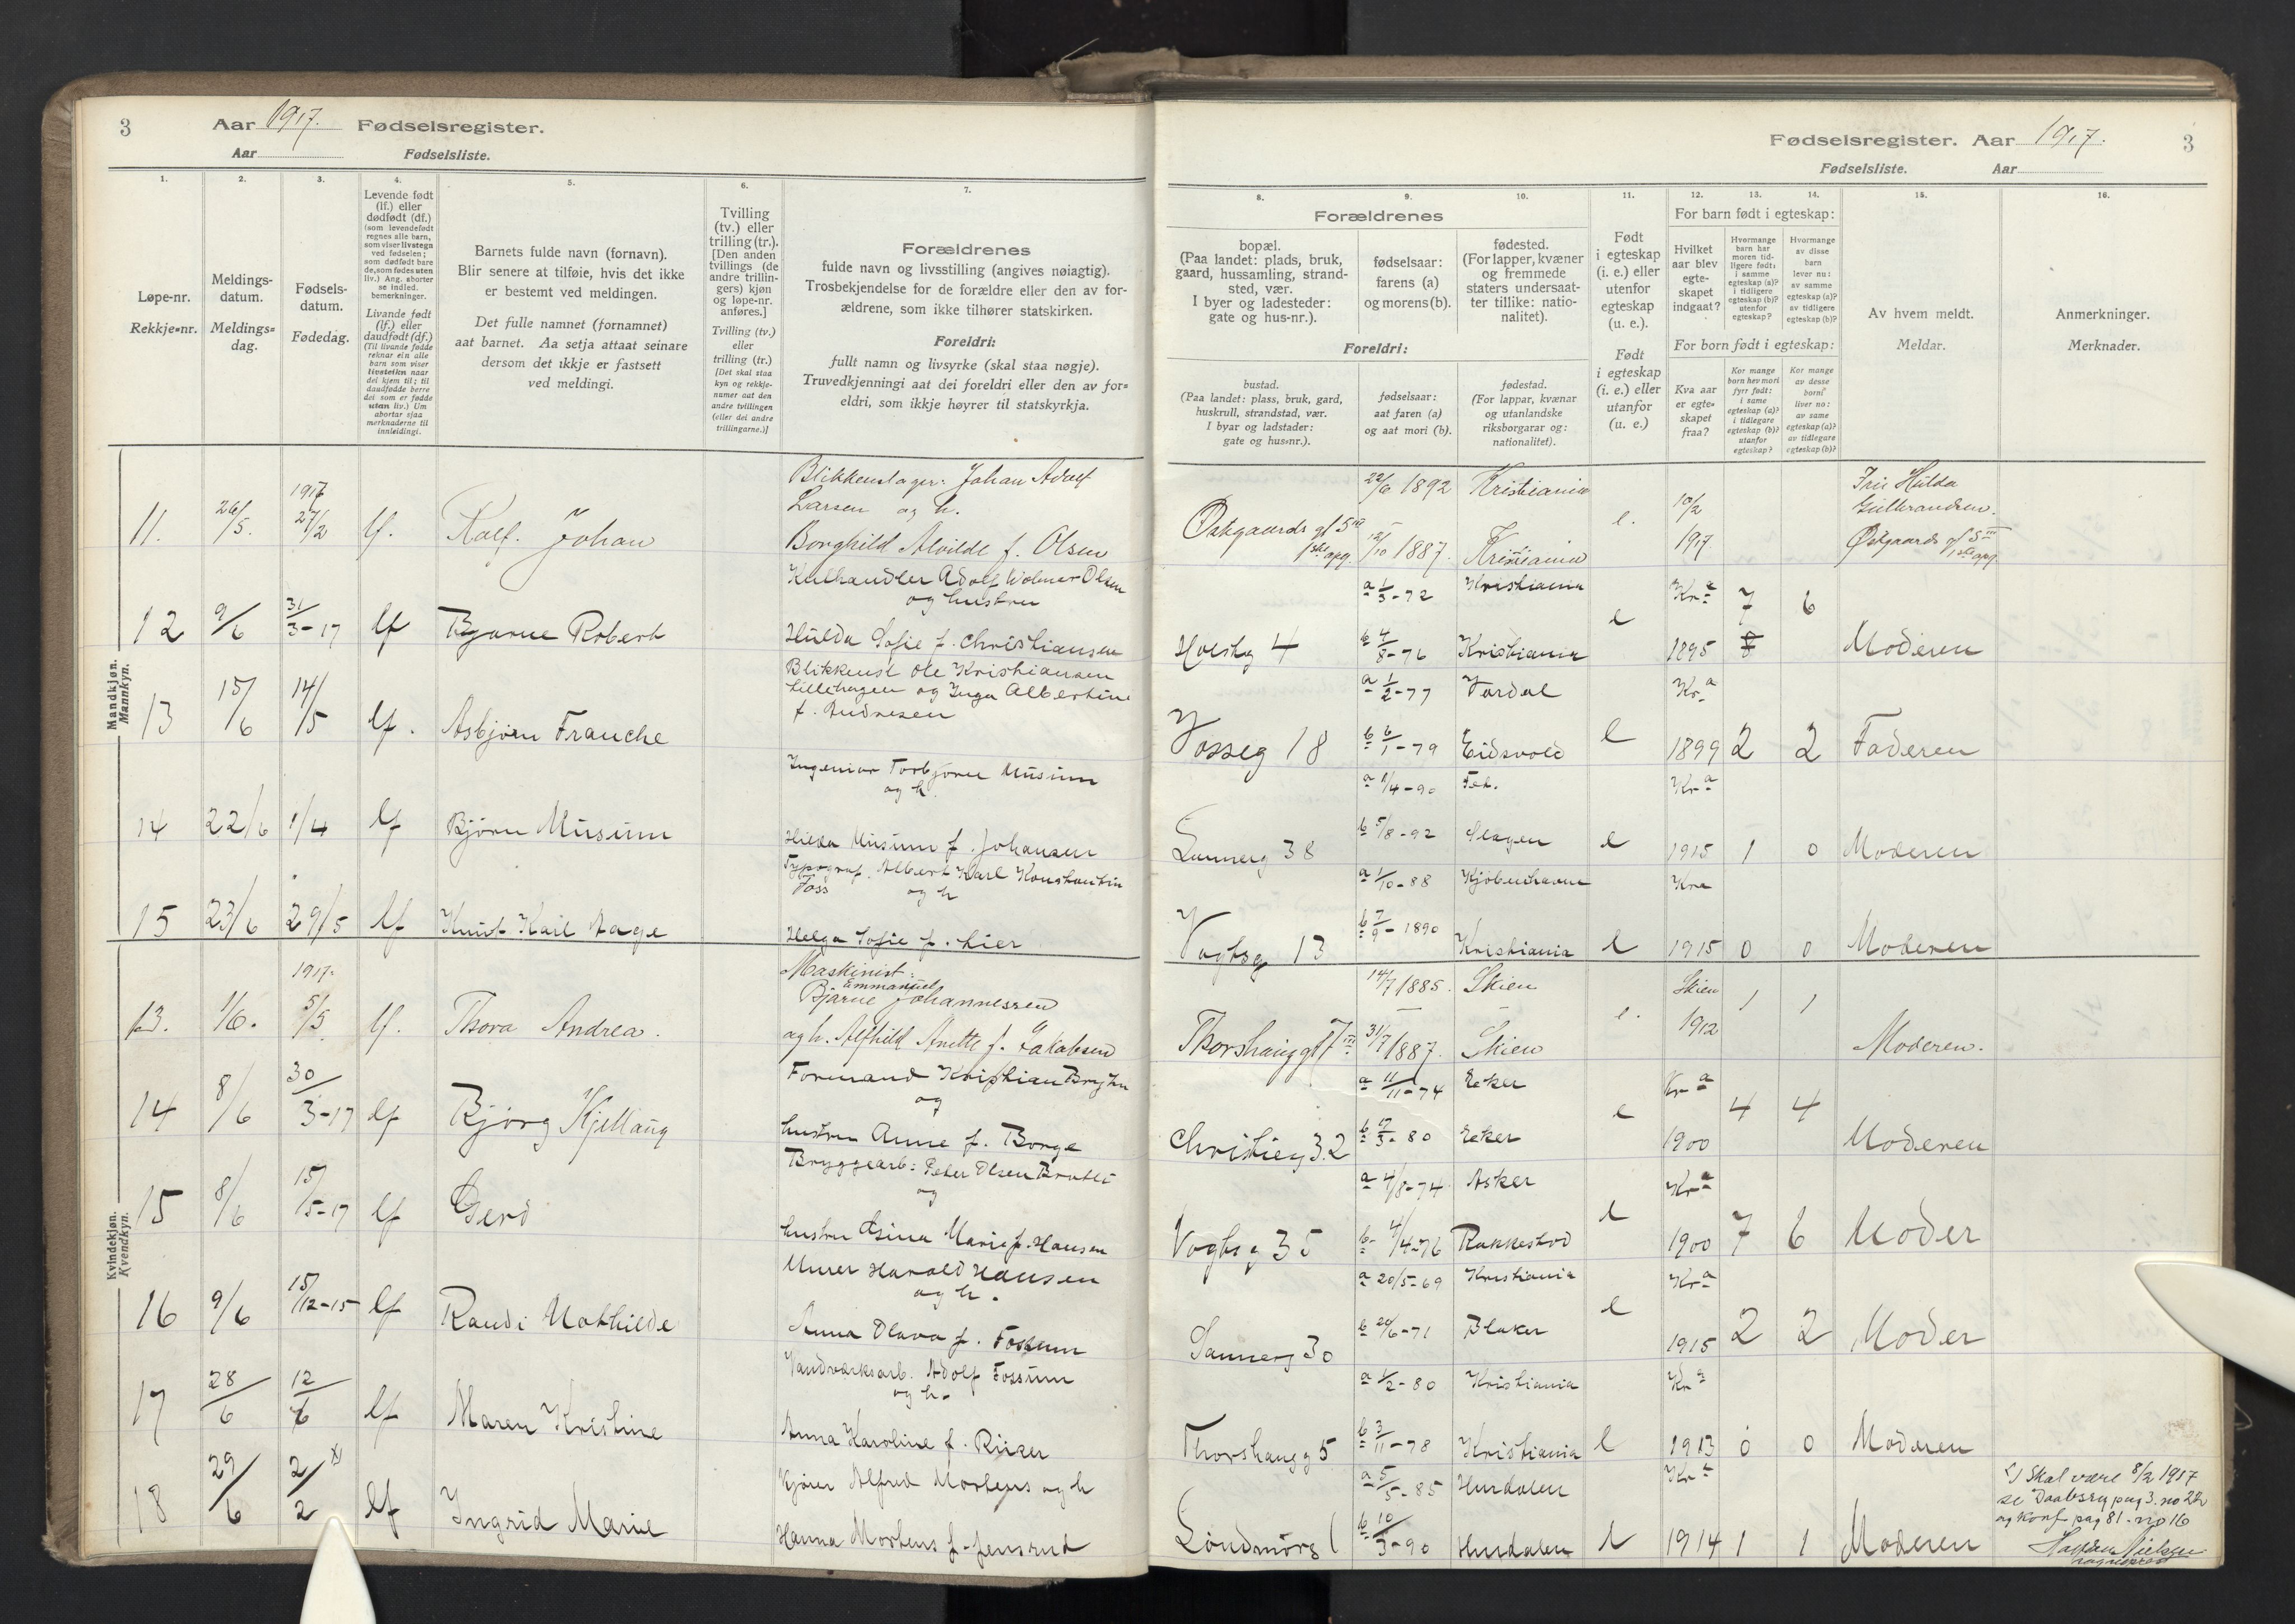 3 Aar 1917. Fødselsregister.
Aar Fødselsliste.
1. 2. 3. 4. 5. 6. 7.
Løpe-nr.
Rekkje-nr.
Meldings-
datum.
Meldings-
dag.
Fødsels-
datum.
Fødedag.
Levende født
(lf.) eller
dødfødt (df.)
(som levendefødt
regnes alle barn,
som viser livstegn
ved fødselen;
som dødfødt bare
de, som fødes uten
liv.) Ang. aborter
se indled.
bemerkninger.
Livande født
(lf.) eller
daudfødt (df.)
(Til livande fødde
reknar ein alle
barn som viser
livsteikn naar
dei kjem til; til
daudfødde berre
dei som er fødde
utan liv.) Um
abortar sjaa
merknaderne til
innleidingi.
Barnets fulde navn (fornavn).
Blir senere at tilføie, hvis det ikke
er bestemt ved meldingen.
Det fulle namnet (fornamnet)
aat barnet. Aa setja attaat seinare
dersom det ikkje er fastsett
ved meldingi.
Tvilling
(tv.) eller
trilling (tr.).
[Den anden
tvillings (de
andre trillin-
gers) kjøn
og løpe-nr.
anføres.]
Tvilling (tv.)
eller
trilling (tr.)
[Det skal staa
kyn og rekkje-
numer aat den
andre tvillingen
(eller dei andre
trillingarne.)]
Forældrenes
fulde navn og livsstilling (angives nøiagtig).
Trosbekjendelse for de forældre eller den av for-
ældrene, som ikke tilhører statskirken.
Foreldri:
fullt namn og livsyrke (skal staa nøgje).
Truvedkjenningi aat dei foreldri eller den av for-
eldri, som ikkje høyrer til statskyrkja.
Mandkjøn.
Mannkyn.
Blikkenslager: Johan Adolf
Larsen og h.
11. 26/5. 1917 27/2 lf. Rolf. Johan
Borghild Alvilde f. Olsen
Kulhandler Adolf Wolmer Olsen
og hustru
12 9/6 31/3-17 lf Bjarne Robert
Hulda Sofie f. Christiansen
Blikkensl Ole Kristiansen
Lillehagen og Inga Albertine
f. Andresen
13 15/6 14/5 lf. Asbjørn Franche
Ingeniør Torbjørn Musum
og h.
14 22/6 1/4 lf Bjørn Musum
Hilda Musum f. Johansen
Typograf. Albert Karl Konstantin
Foss og h
15 23/6 29/5 lf Knut Karl Aage
Helga Sofie f. Lier
Kvindekjøn.
Kvendkyn.
Maskinist:
Emmanuel
Bjarne Johannessen
13. 1/6. 1917. 5/5 lf. Thora Andrea.
og h. Alfhild Anette f. Jakobsen
Formand Kristian Bryhn
og
14 8/6 30/3-17 lf Bjørg Kjellaug
hustru Anne f. Borge
Bryggearb: Peter Olsen Braten
og
15 8/6 15/5-17 lf Gerd
hustru Gina Marie f. Hansen
Murer Harald Hansen
og h.
16 9/6 15/12-15 lf Randi Mathilde
Anna Olava f. Fossum
Vandværksarb. Adolf Fossum
og h.
17 28/6 12/6 lf Maren Kristine
Anna Karoline f. Riiser
Kjører Alfred Mortens og h
18 29/6 2/2 x) lf Ingrid Marie
Hanna Mortens f. Jensrud
Fødselsregister. Aar 1917. 3
Fødselsliste. Aar
8. 9. 10. 11. 12. 13. 14. 15. 16.
Forældrenes
bopæl.
(Paa landet: plads, bruk,
gaard, hussamling, strand-
sted, vær.
I byer og ladesteder:
gate og hus-nr.).
fødselsaar:
farens (a)
og morens (b).
fødested.
(For lapper, kvæner
og fremmede
staters undersaat-
ter tillike: natio-
nalitet).
Foreldri:
bustad.
(Paa landet: plass, bruk, gard,
huskrull, strandstad, vær.
I byar og ladstader:
gate og hus-nr.).
fødselsaar:
aat faren (a)
og aat mori (b).
fødestad.
(For lappar, kvænar
og utanlandske
riksborgarar og:
nationalitet).
Født
i egteskap
(i. e.) eller
utenfor
egteskap
(u. e.).
Født
i egteskap
(i. e.) eller
utanfor
(u. e.)
For barn født i egteskap:
Hvilket
aar blev
egte-
skapet
indgaat?
Hvormange
barn har
moren tid-
ligere født:
i samme
egteskap (a)?
i tidligere
egteskap (b)?
utenfor
egteskap?
Hvormange
av disse
barn
lever nu:
av samme
egteskap (a)?
av tidligere
egteskap (b)?
For born født i egteskap:
Kva aar
er egte-
skapet
fraa?
Kor mange
born hev mori
fyrr født:
i same
egteskap (a)?
i tidlegare
egteskap (b)?
utanfor
egteskap?
Kor mange
av desse
borni
liver no:
av same
egteskap (a)?
av tidlegare
egteskap (b)?
Av hvem meldt.
Meldar.
Anmerkninger.
Merknader.
22/6 1892 Kristiania
Østgaards gt 5 III
1ste opg. 12/10 1887. Kristiania e. 10/2 1917
Fru Hulda
Gulbrandsen.
Østgaards gt 5 III
1ste opg.
a 1/3-72 Kristiania Kra 7 6
Holstg 4 b 4/8-76 Kristiania e 1895 8 Moderen
a 1/2-77 Vardal Kra
Vosseg 18 b 6/1-79 Eidsvold e 1899 2 2 Faderen
a 1/4-90 Fet. Kra
Sannerg 38 b 5/8-92 Slagen e 1915 1 0 Moderen
a 1/10-88 Kjøbenhavn Kra
Vogtsg 13 b 7/9-1890 Kristiania e 1915 0 0 Moderen
14/7 1885. Skien Skien 1 1
Thorshauggt 7 III 31/7 1887. Skien e. 1912 Moderen.
a 11/11-74 Eker Kra 4 4
Christieg 32 b 17/3-80 Eker e 1900 Moderen
a 4/8-74 Asker Kra
Vogtsg 35 b 4/4-76 Rakkestad e 1900 7 6 Moder
a 20/5-69 Kristiania Kra
Sannerg 30 b 24/6-71 Blaker e 1915 2 2 Moder
a 1/2-80 Kristiania Kra
Thorshaugg 5 b 3/11-78 Kristiania e 1913 0 0 Moderen
a 5/5-85 Hurdalen Kra
Søndmørsg 1 b 10/3-90 Hurdalen e 1914 1 1 Moderen
x) Skal være 8/2 1917
se Daabsreg pag 3. no 22
og Konf pag 81. no 16
Halfdan Nielsen
sogneprest